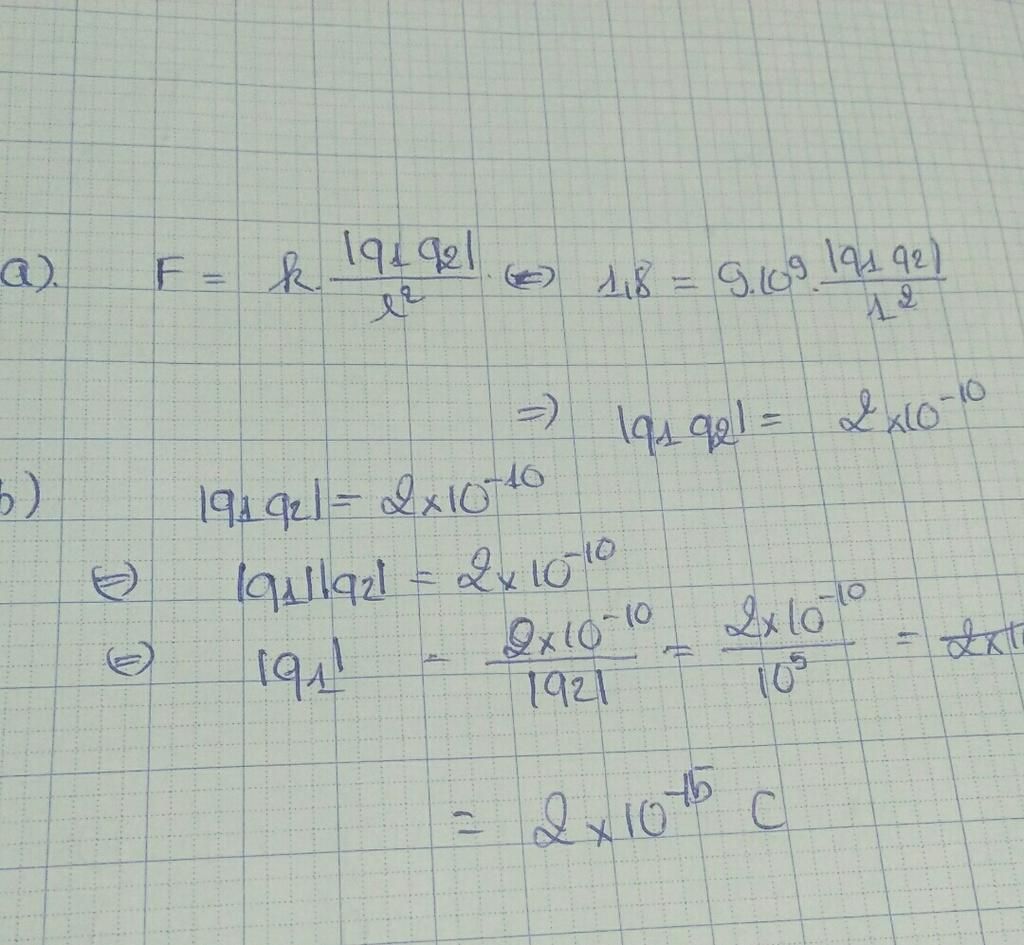 a). F = k. |q1 q2| / r² . <=> 1,8 = 9.10⁹. |q1 q2| / 1²
=> |q1 q2| = 2×10⁻¹⁰
b) |q1 q2| = 2×10⁻¹⁰
<=> |q1||q2| = 2×10⁻¹⁰
<=> |q1| = 2×10⁻¹⁰ / |q2| = 2×10⁻¹⁰ / 10⁵ =
= 2×10⁻¹⁵ C